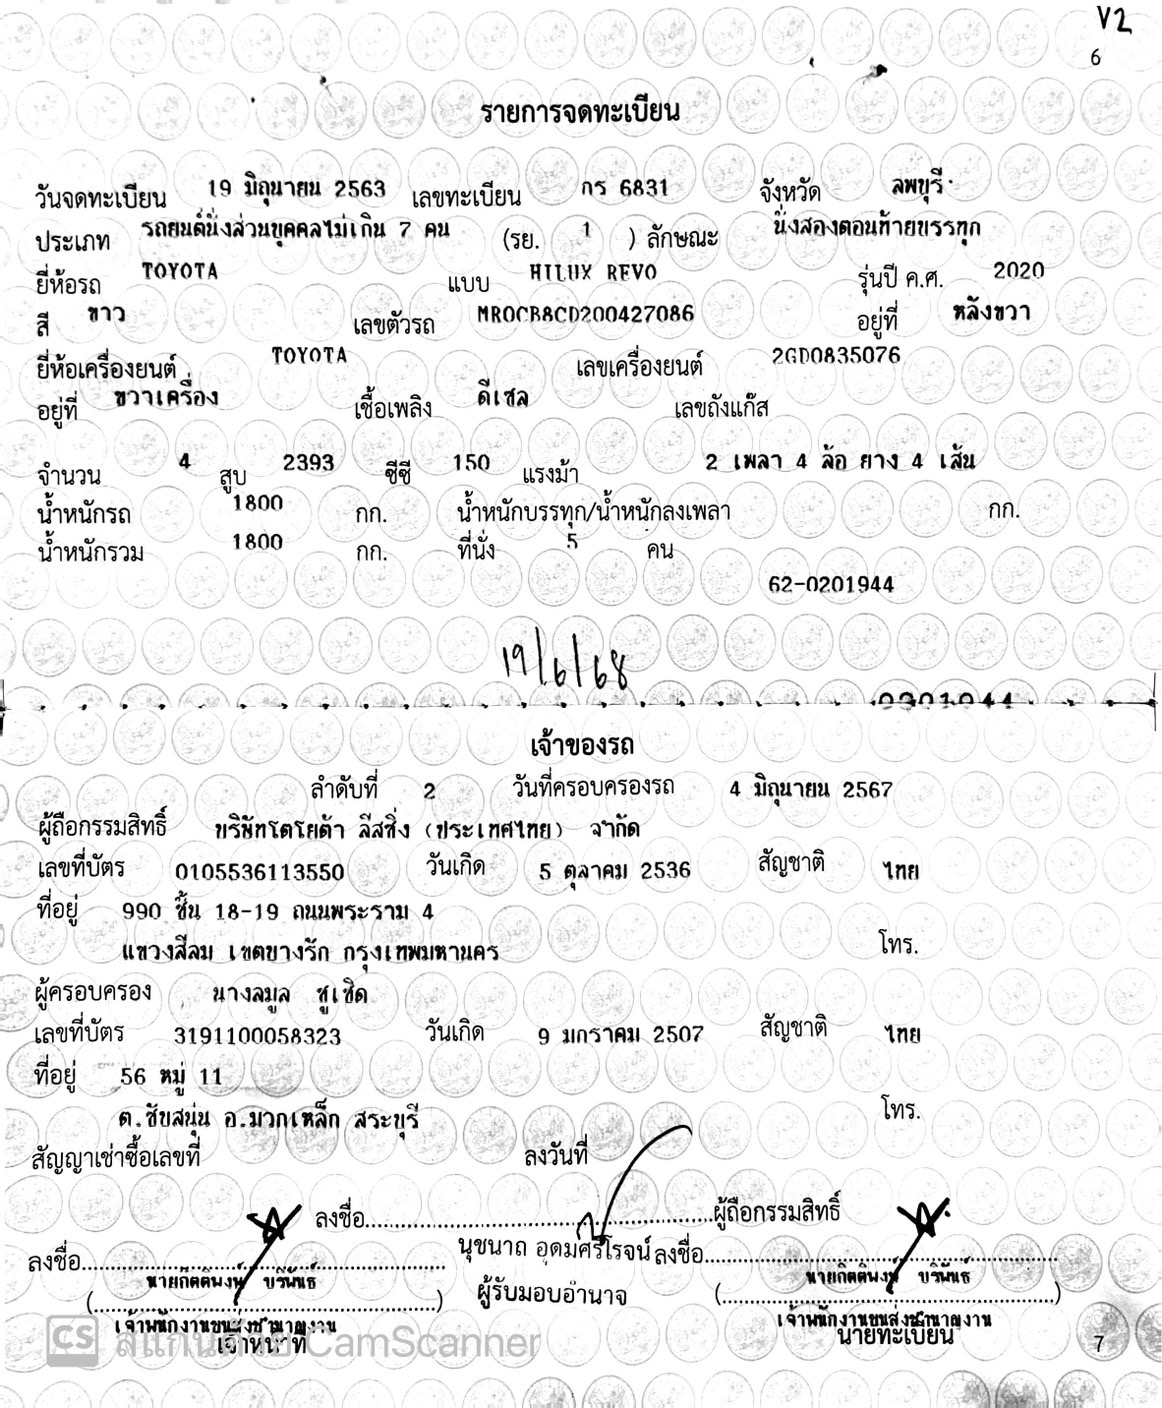 V2
6
รายการจดทะเบียน
วันจดทะเบียน 19 มิถุนายน 2563 เลขทะเบียน กร 6831 จังหวัด ลพบุรี
ประเภท รถยนต์นั่งส่วนบุคคลไม่เกิน 7 คน (รย. 1 ) ลักษณะ นั่งสองตอนท้ายบรรทุก
ยี่ห้อรถ TOYOTA แบบ HILUX REVO รุ่นปี ค.ศ. 2020
สี ขาว เลขตัวรถ MR0CB8CD200427086 อยู่ที่ หลังขวา
ยี่ห้อเครื่องยนต์ TOYOTA เลขเครื่องยนต์ 2GD0835076
อยู่ที่ ขวาเครื่อง เชื้อเพลิง ดีเซล เลขถังแก๊ส
จำนวน 4 สูบ 2393 ซีซี 150 แรงม้า 2 เพลา 4 ล้อ ยาง 4 เส้น
น้ำหนักรถ 1800 กก. น้ำหนักบรรทุก/น้ำหนักลงเพลา กก.
น้ำหนักรวม 1800 กก. ที่นั่ง 5 คน
62-0201944
19/6/68
เจ้าของรถ
ลำดับที่ 2 วันที่ครอบครองรถ 4 มิถุนายน 2567
ผู้ถือกรรมสิทธิ์ บริษัทโตโยต้า ลีสซิ่ง (ประเทศไทย) จำกัด
เลขที่บัตร 0105536113550 วันเกิด 5 ตุลาคม 2536 สัญชาติ ไทย
ที่อยู่ 990 ชั้น 18-19 ถนนพระราม 4
แขวงสีลม เขตบางรัก กรุงเทพมหานคร โทร.
ผู้ครอบครอง นางลมูล ชูเชิด
เลขที่บัตร 3191100058323 วันเกิด 9 มกราคม 2507 สัญชาติ ไทย
ที่อยู่ 56 หมู่ 11
ต.ซับสนุ่น อ.มวกเหล็ก สระบุรี โทร.
สัญญาเช่าซื้อเลขที่ ลงวันที่
ลงชื่อ ผู้ถือกรรมสิทธิ์
ลงชื่อ นุชนาถ อุดมศรีโรจน์ ลงชื่อ
นายกิตติพงษ์ บริพันธ์ ผู้รับมอบอำนาจ นายกิตติพงษ์ บริพันธ์
เจ้าพนักงานขนส่งชำนาญงาน เจ้าพนักงานขนส่งชำนาญงาน
เจ้าหน้าที่ นายทะเบียน
CS สแกนด้วย CamScanner
7